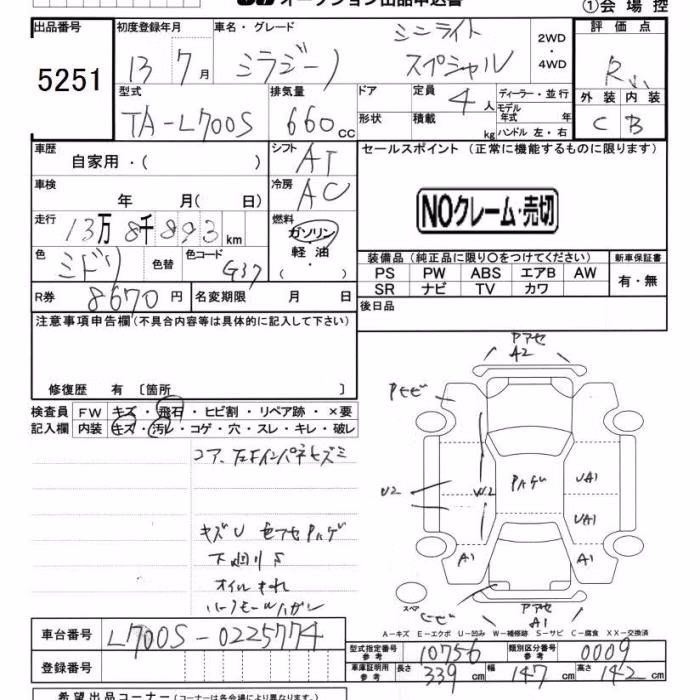 オークション出品申込書
①会場控
出品番号 5251
初度登録年月 13 7月
車名・グレード ミラジーノ ミニライト スペシャル
2WD・4WD
評価点 R
外装 内装
C B
型式 TA-L700S
排気量 660cc
ドア
形状
定員 4人
積載 kg
ディーラー・並行
モデル年式 年
ハンドル 左・右
車歴 自家用・( )
シフト AT
車検 年 月( 日)
冷房 AC
走行 13万8千893km
燃料 ガソリン・軽油 ( )
色 ミドリ 色替
色コード G37
R券 8670円
名変期限 月 日
セールスポイント (正常に機能するものに限ります)
NOクレーム・売切
装備品 (純正品に限り○をつけてください)
新車保証書
PS PW ABS エアB AW
SR ナビ TV カワ
有・無
後日品
注意事項申告欄 (不具合内容等は具体的に記入して下さい)
修復歴 有 [箇所 ]
検査員記入欄
FW キズ・飛石・ヒビ割・リペア跡・×要
内装 キズ・汚レ・コゲ・穴・スレ・キレ・破レ
コア、左Fインパネヒズミ
キズU
下廻りS
オイルもれ
アセ
A2
U2
W2
UA1
UA1
A1
A1
アセ
A1
スペア
A-キズ E-エクボ U-凹み W-補修跡 S-サビ C-腐食 XX-交換済
車台番号 L700S-0225774
登録番号
型式指定番号 参考 10756
類別区分番号 参考 0009
車庫証明用 参考 長さ 339cm 幅 147cm 高さ 142cm
希望出品コーナー (コーナーは各会場により異なります。)